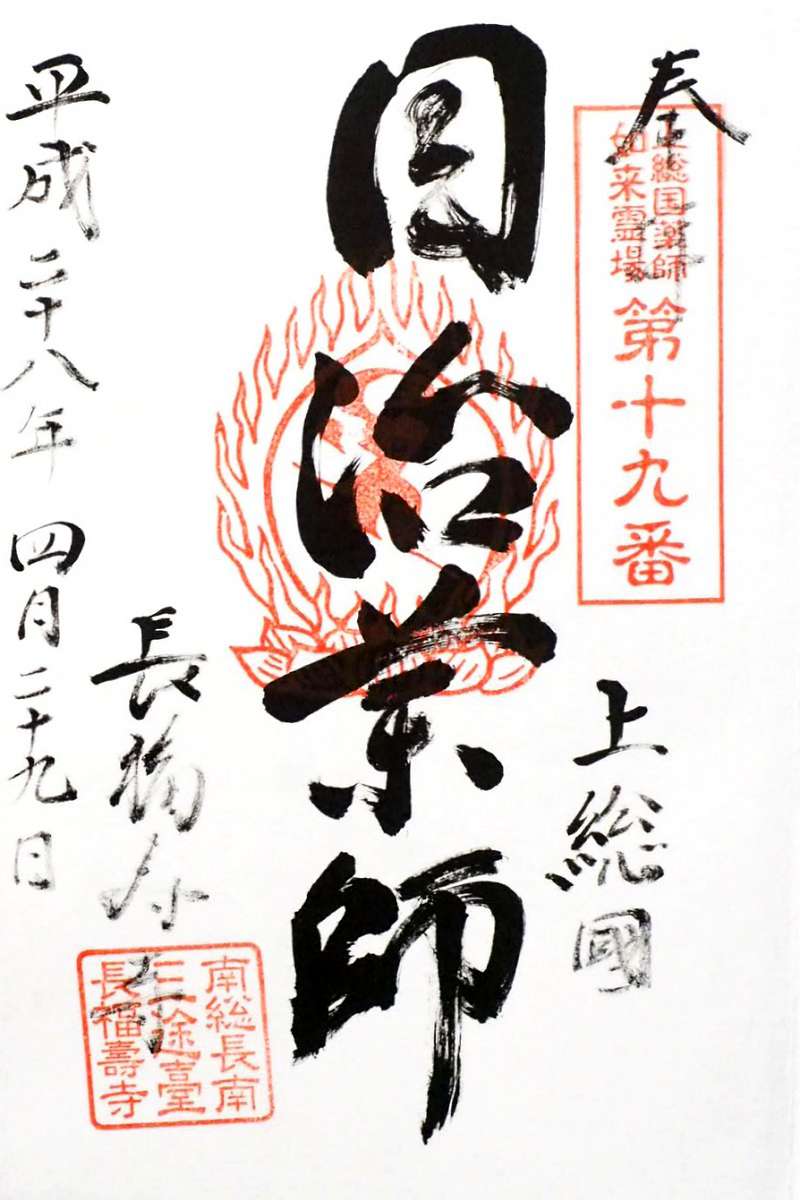 奉拝
上総国薬師
如来霊場
第十九番
上総國
目治薬師
長福寿寺
南総長南
三途臺
長福壽寺
平成二十八年四月二十九日